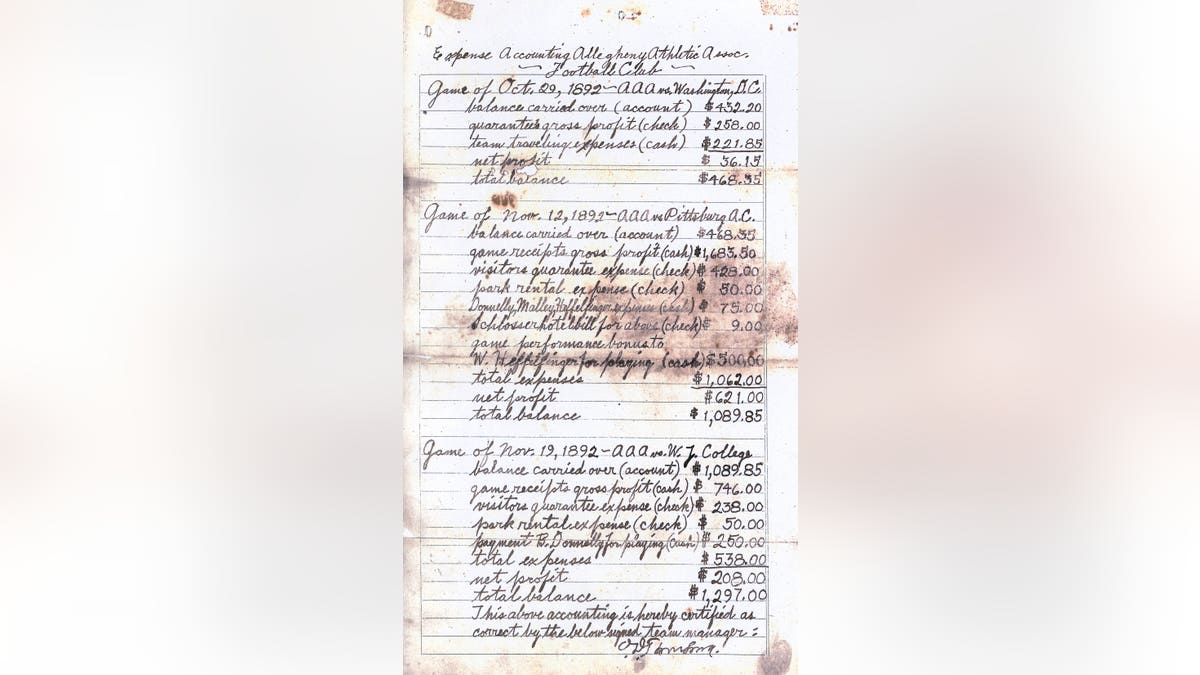 Expense Accounting Allegheny Athletic Assoc.
Football Club
Game of Oct. 29, 1892 – AAA vs. Washington, D.C.
balance carried over (account) $432.20
guarantee gross profit (check) $258.00
team traveling expenses (cash) $221.85
net profit $36.15
total balance $468.35
Game of Nov. 12, 1892 – AAA vs Pittsburg A.C.
balance carried over (account) $468.35
game receipts gross profit (cash) $1,683.50
visitors guarantee expense (check) $428.00
park rental expense (check) $50.00
Donnelly, Malley, Heffelfinger expenses (cash) $75.00
Schlosser hotel bill for above (check) $9.00
game performance bonus to
W. Heffelfinger for playing (cash) $500.00
total expenses $1,062.00
net profit $621.00
total balance $1,089.85
Game of Nov. 19, 1892 – AAA vs. W. J. College
balance carried over (account) $1,089.85
game receipts gross profit (cash) $746.00
visitors guarantee expense (check) $238.00
park rental expense (check) $50.00
payment B. Donnelly for playing (cash) $250.00
total expenses $538.00
net profit $208.00
total balance $1,297.00
This above accounting is hereby certified as
correct by the below signed team manager: